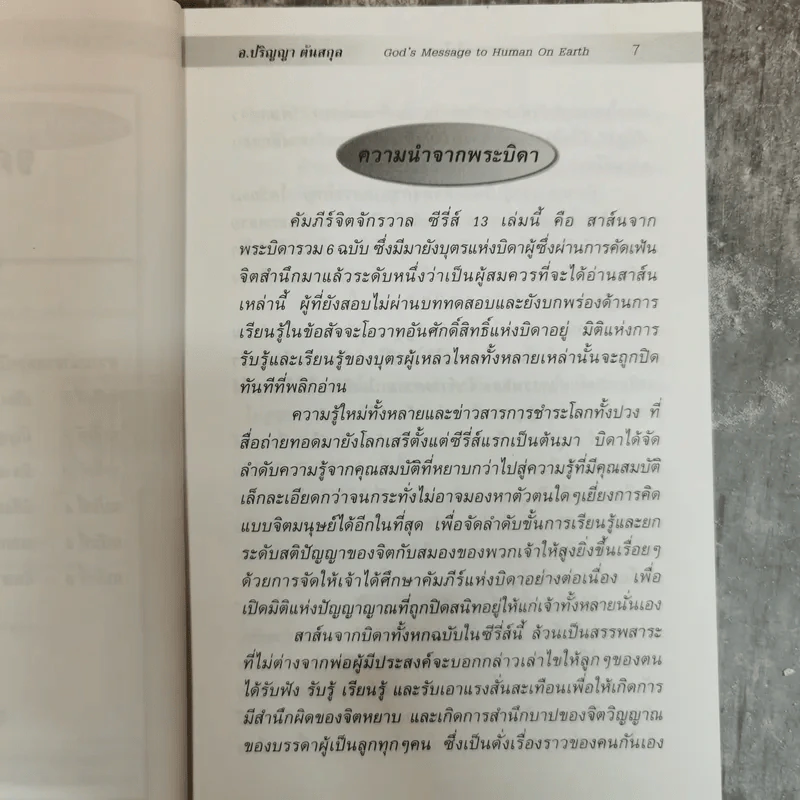 อ.ปริญญา ตันสกุล God's Message to Human On Earth 7
ความนำจากพระบิดา
คัมภีร์จิตจักรวาล ซีรี่ส์ 13 เล่มนี้ คือ สาส์นจาก
พระบิดารวม 6 ฉบับ ซึ่งมีมายังบุตรแห่งบิดาผู้ซึ่งผ่านการคัดเฟ้น
จิตสำนึกมาแล้วระดับหนึ่งว่าเป็นผู้สมควรที่จะได้อ่านสาส์น
เหล่านี้ ผู้ที่ยังสอบไม่ผ่านบททดสอบและยังบกพร่องด้านการ
เรียนรู้ในข้อสัจจะโอวาทอันศักดิ์สิทธิ์แห่งบิดาอยู่ มิติแห่งการ
รับรู้และเรียนรู้ของบุตรผู้เหลวไหลทั้งหลายเหล่านั้นจะถูกปิด
ทันทีที่พลิกอ่าน
ความรู้ใหม่ทั้งหลายและข่าวสารการชำระโลกทั้งปวง ที่
สื่อถ่ายทอดมายังโลกเสรีตั้งแต่ซีรี่ส์แรกเป็นต้นมา บิดาได้จัด
ลำดับความรู้จากคุณสมบัติที่หยาบกว่าไปสู่ความรู้ที่มีคุณสมบัติ
เล็กละเอียดกว่าจนกระทั่งไม่อาจมองหาตัวตนใดๆเยี่ยงการคิด
แบบจิตมนุษย์ได้อีกในที่สุด เพื่อจัดลำดับขั้นการเรียนรู้และยก
ระดับสติปัญญาของจิตกับสมองของพวกเจ้าให้สูงยิ่งขึ้นเรื่อยๆ
ด้วยการจัดให้เจ้าได้ศึกษาคัมภีร์แห่งบิดาอย่างต่อเนื่อง เพื่อ
เปิดมิติแห่งปัญญาญาณที่ถูกปิดสนิทอยู่ให้แก่เจ้าทั้งหลายนั่นเอง
สาส์นจากบิดาทั้งหกฉบับในซีรี่ส์นี้ ล้วนเป็นสรรพสาระ
ที่ไม่ต่างจากพ่อผู้มีประสงค์จะบอกกล่าวเล่าไขให้ลูกๆของตน
ได้รับฟัง รับรู้ เรียนรู้ และรับเอาแรงสั่นสะเทือนเพื่อให้เกิดการ
มีสำนึกผิดของจิตหยาบ และเกิดการสำนึกบาปของจิตวิญญาณ
ของบรรดาผู้เป็นลูกทุกๆคน ซึ่งเป็นดั่งเรื่องราวของคนกันเอง